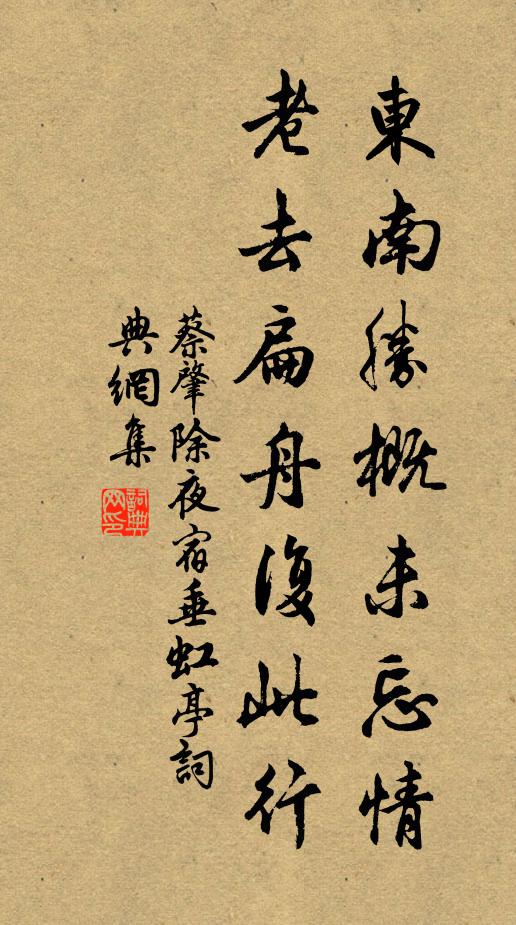 東南勝概未忘情
老去扁舟復此行
蔡肇除夜宿垂虹亭詞
典網集
詞典
网印